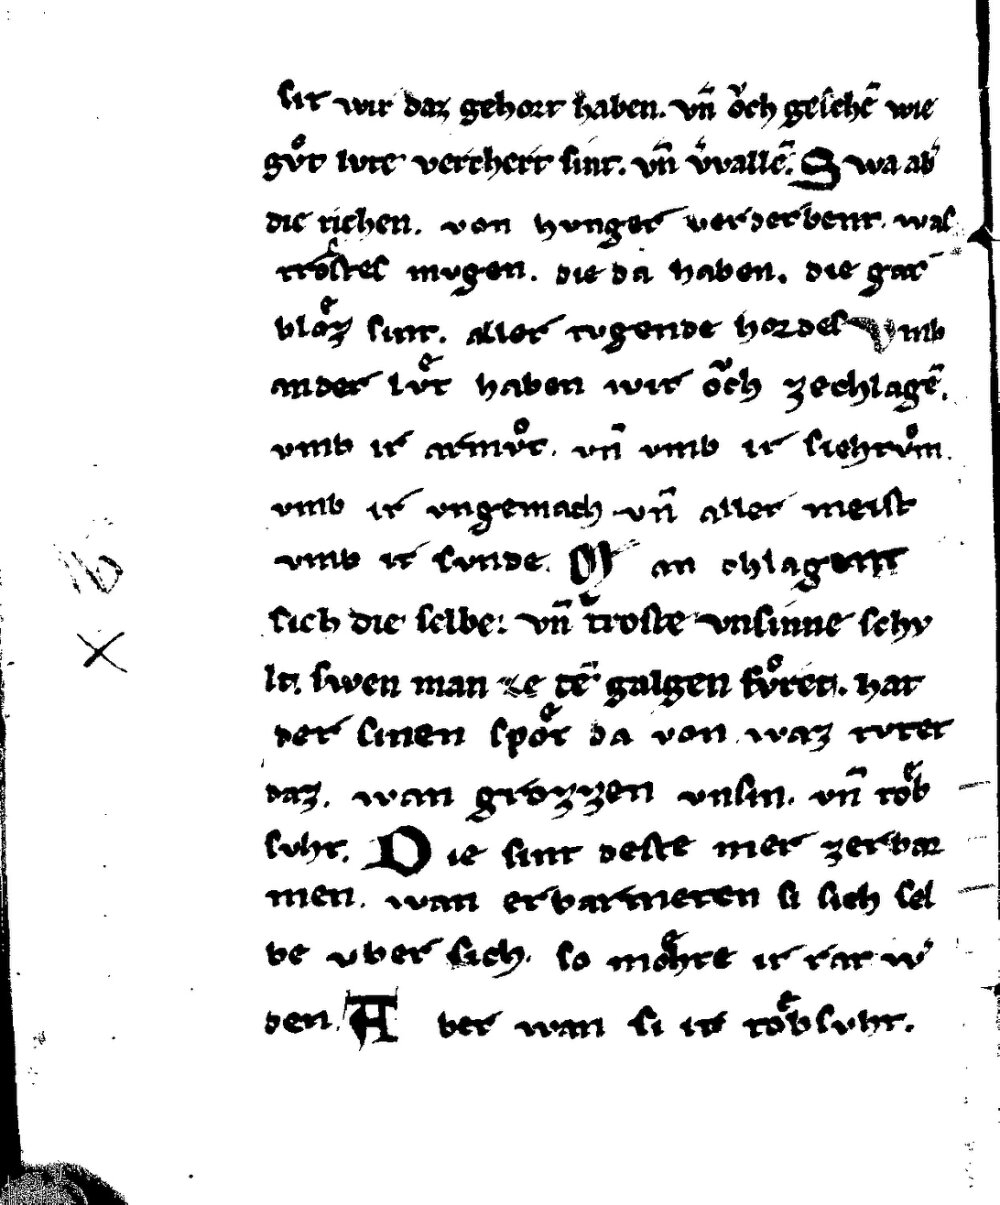 sit wir daz gehort haben. vñ oͮch gesehē wie
gvͦt lvte verchert sint. vñ v̓vallē. Swa ab̓
die richen. von hvnger verderbent. was
trostes mvgen. die da haben. die gar
bloͤz sint. aller tvgende hordes Vmb
ander lvͤt haben wir oͮch zechlagē.
vmb ir armvͦt. vñ vmb ir siehtvͦm.
vmb ir vngemach vñ aller meist
vmb ir svnde. Man chlagent
sich die selbe: vñ troste vnsinne schv
lt. swen man ze tē galgen fvͦret. hat
der sinen spoͤt da von. waz tvtet
daz. wan grozzen vnsin. vñ toͤb
svht. Die sint deste mer zerbar
men. wan erbarmeten si sich sel
be vber sich. so moͤhte ir rat w̓
den. Aber wan si ir toͤbsvht.